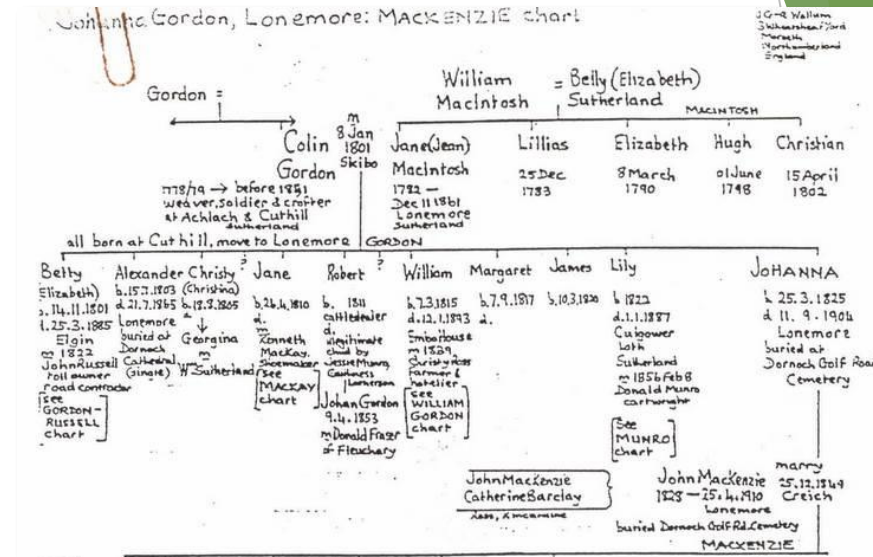 Johanna Gordon, Lonemore: MACKENZIE chart
J G-R Wallum
Morpeth
Northumberland
England
Gordon =
William
MacIntosh
= Betty (Elizabeth)
Sutherland
MACINTOSH
m
8 Jan
1801
Skibo
Colin
Gordon
1778/79 → before 1851
weaver, soldier & crofter
at Achlach & Cuthill
Sutherland
Jane (Jean)
MacIntosh
1782 —
Dec 11 1861
Lonemore
Sutherland
Lillias
25 Dec
1783
Elizabeth
8 March
1790
Hugh
01 June
1798
Christian
15 April
1802
all born at Cuthill, move to Lonemore
GORDON
Betty
Elizabeth)
b. 14.11.1801
d. 25.3.1885
Elgin
m 1822
John Russell
toll owner
road contractor
[see
GORDON-
RUSSELL
chart]
Alexander
b. 15.7.1803
d 21.7.1865
Lonemore
buried at
Dornoch
Cathedral
(single)
Christy
(Christina)
b. 18.8.1805
↓
Georgina
m
W Sutherland
?
Jane
b. 26.4.1810
d.
m
Kenneth
Mackay,
Shoemaker
[see
MACKAY
chart]
Robert
b. 1811
cattledealer
d.
illegitimate
child by
Jessie Munro,
Caithness
Johan Gordon
9.4.1853
m Donald Fraser
of Fleuchary
?
William
b. 7.3.1815
d. 12.1.1893
Embo House
m 1839
Christy Ross
Farmer &
hotelier
[see
WILLIAM
GORDON
chart]
Margaret
b. 7.9.1817
d.
James
b. 10.3.1820
Lily
b 1822
d. 1.1.1887
Culgower
Loth
Sutherland
m 1856 Feb 8
Donald Munro
cartwright
[See
MUNRO
chart]
JOHANNA
b. 25.3.1825
d 11. 9. 1904
Lonemore
buried at
Dornoch Golf Road
Cemetery
John Mackenzie
Catherine Barclay
Ross, Kincardine
John Mackenzie
1828 — 25.4.1910
Lonemore
buried Dornoch Golf Rd. Cemetery
marry
25.12.1849
Creich
MACKENZIE